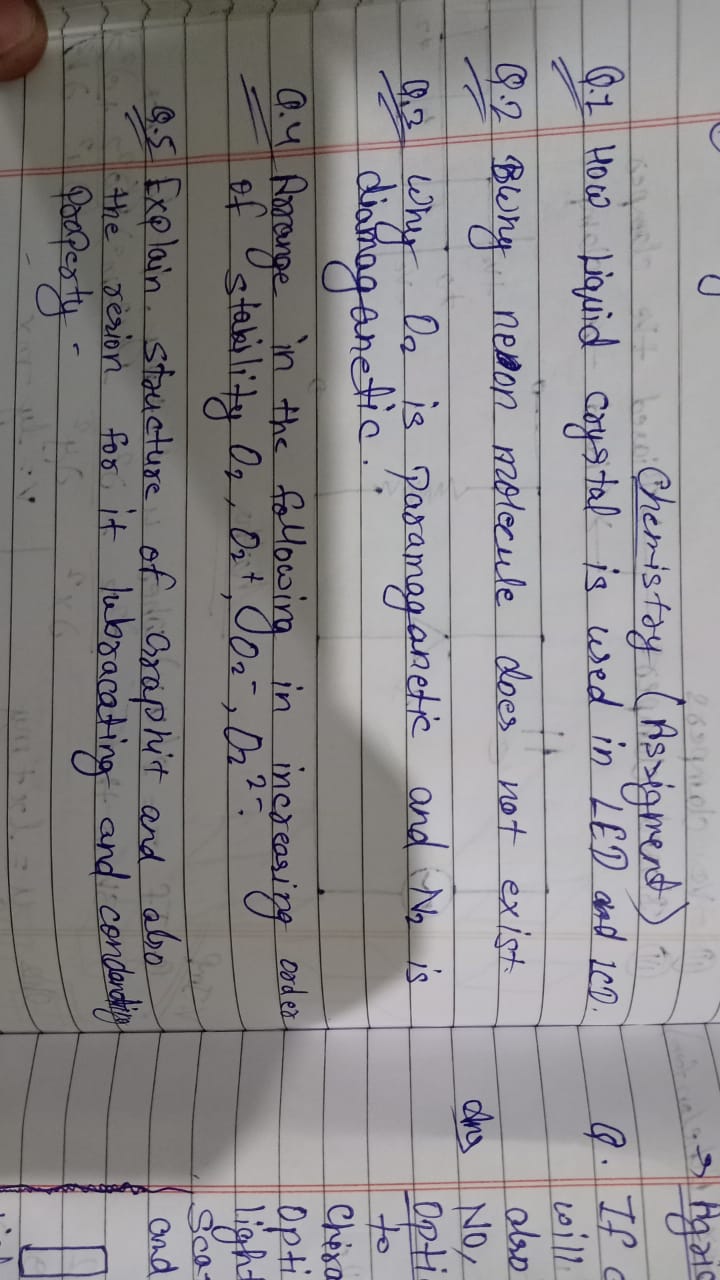 Chemistry (Assigment)
Q.1 How Liquid crystal is used in LED and LCD.
Q.2 Bwhy neon molecule does not exist.
Q.3 Why O₂ is paramaganetic and N₂ is
diamaganetic.
Q.4 Arrange in the following in increasing order
of stability O₂, O₂⁺, O₂⁻, O₂²⁻.
Q.5 Explain structure of Graphit and also
the resion for it lubracating and condanding
Property-
Q. If
will
also
Ans No,
Opti
to
Chira
Opti
light
Sca
and